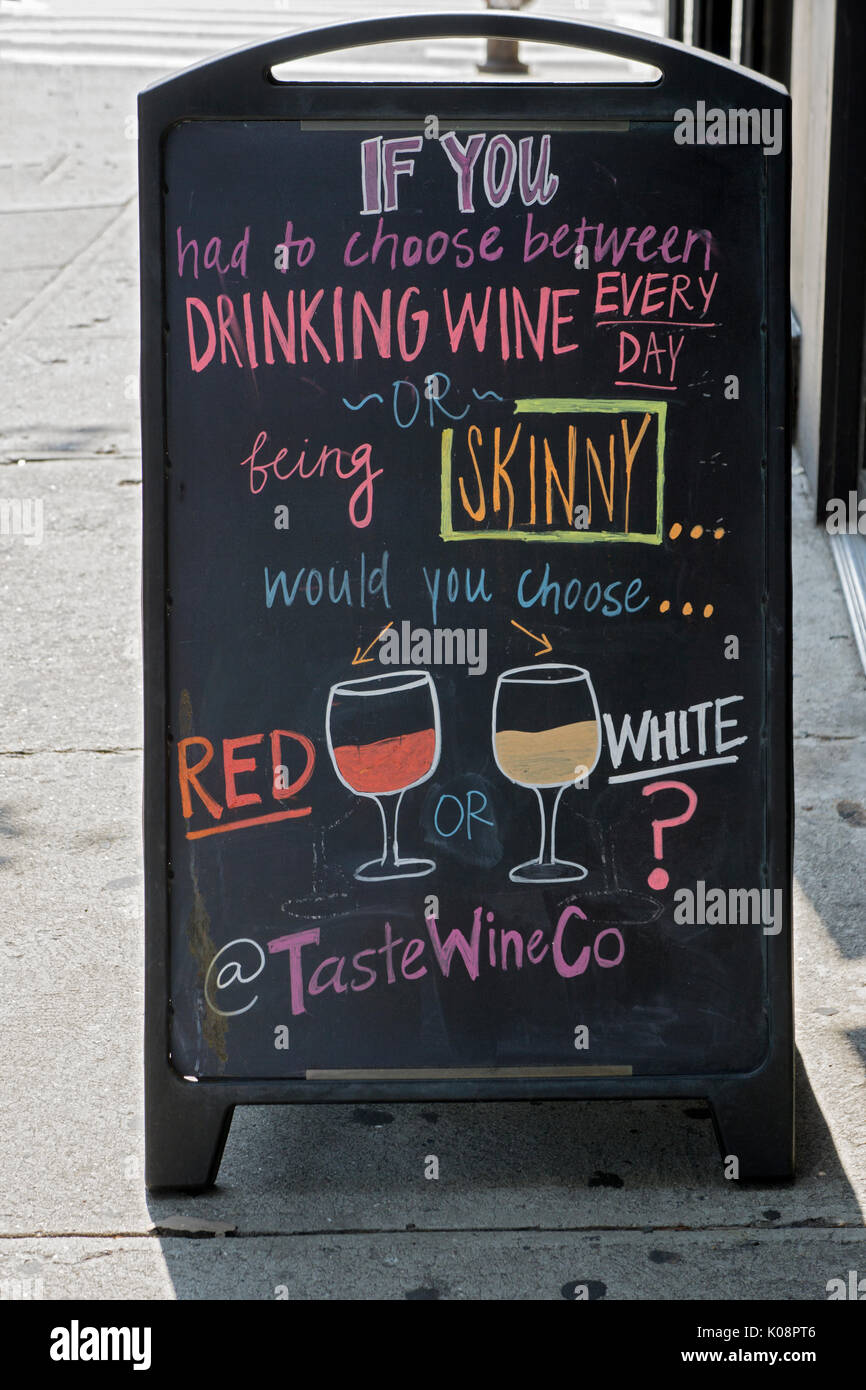 IF YOU
had to choose between
DRINKING WINE EVERY DAY
~ OR ~
being SKINNY...
would you choose...
RED OR WHITE?
@TasteWineCo
alamy
Image ID: K08PT6
www.alamy.com